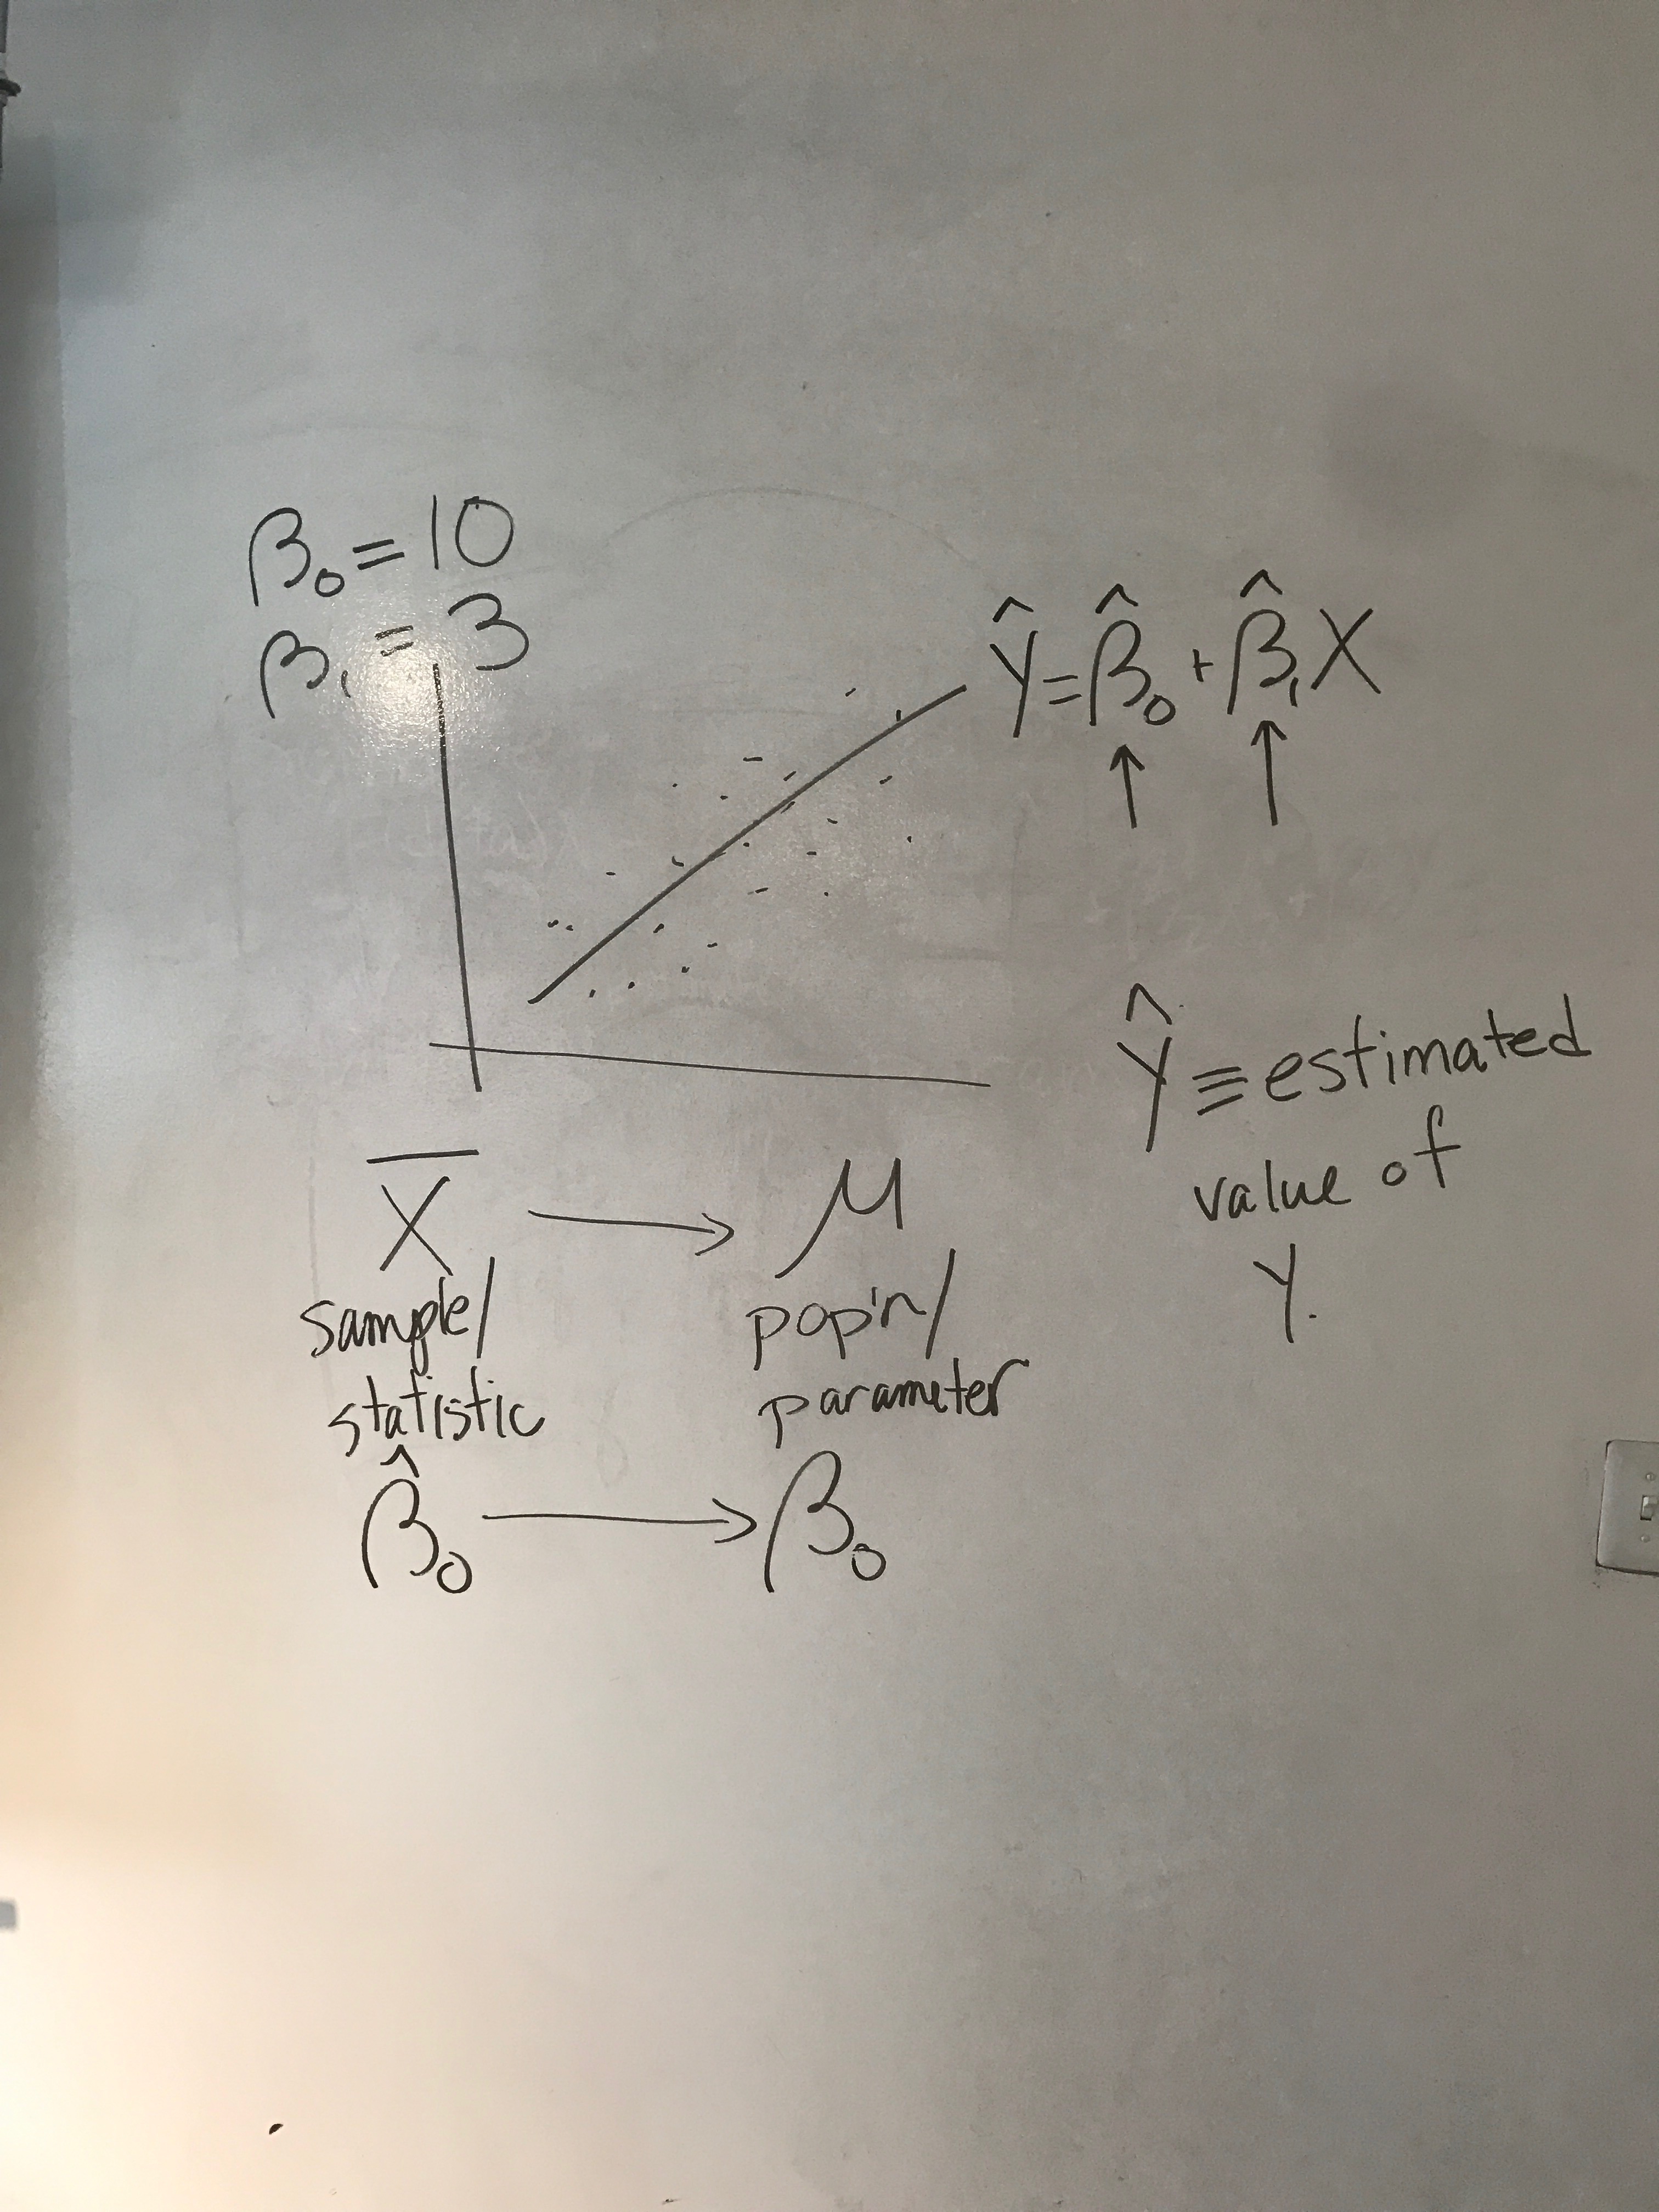 β₀ = 10
β₁ = 3
Ŷ = β̂₀ + β̂₁X
Ŷ ≡ estimated
value of
Y.
X̅ → μ
sample/ pop'n/
statistic parameter
β̂₀ → β₀